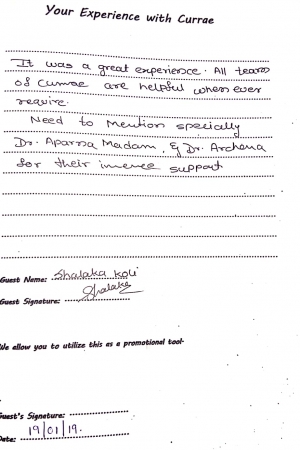 Your Experience with Currae
It was a great experience. All team
of Currae are helpful when ever
require.
Need to Mention specially
Dr. Aparna Madam, & Dr. Archena
for their imence support
Guest Name: Shalaka Koli
Guest Signature: Shalaka
We allow you to utilize this as a promotional tool-
Guest's Signature:
Date: 19/01/19.